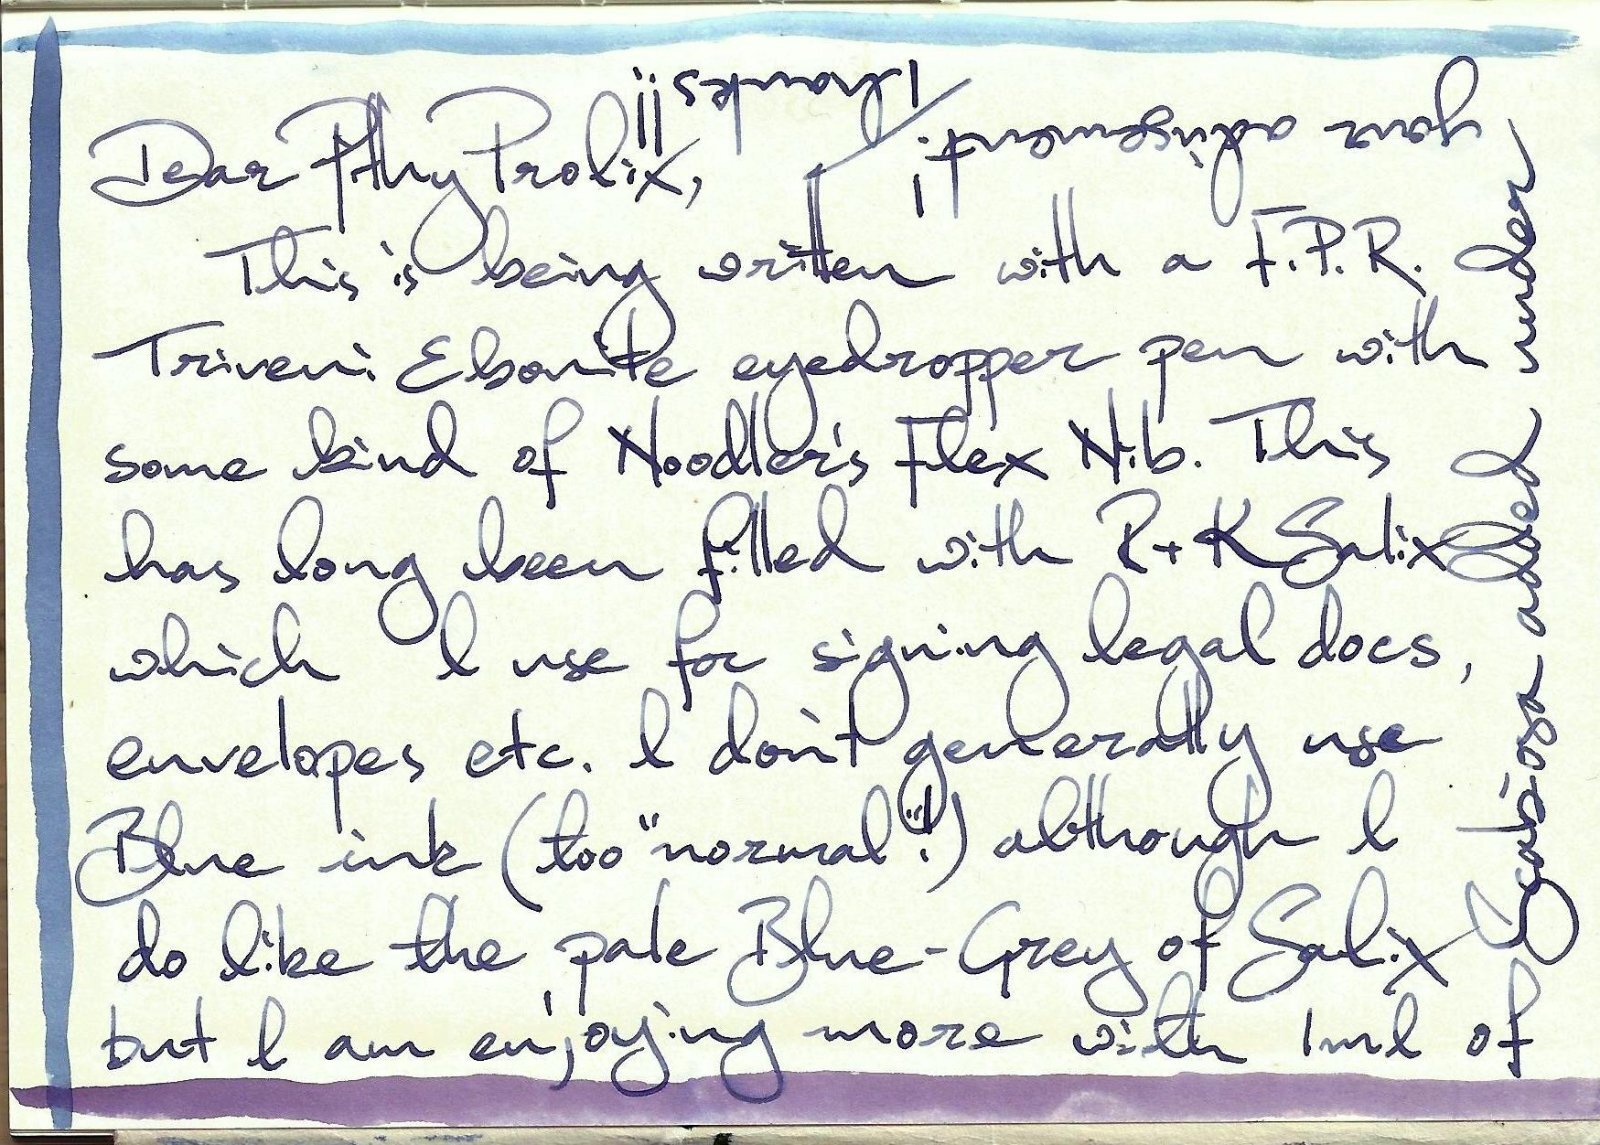 Dear Pthy Prolix,
This is being written with a F.P.R.
Triveni Ebonite eyedropper pen with
some kind of Noodler's Flex Nib. This
has long been filled with R+K Salix
which I use for signing legal docs,
envelopes etc. I don't generally use
Blue ink (too "normal"!) although I
do like the pale Blue-Grey of Salix
but I am enjoying more with 1ml of
Scabiosa added under
your adingement!
Thanks!!